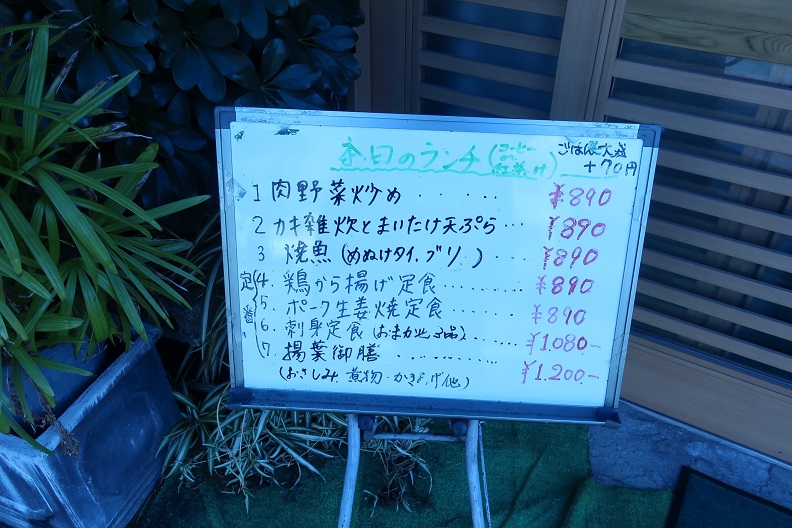 本日のランチ(コーヒー付)
ごはん大盛
+70円
1 肉野菜炒め ・・・・ ¥890
2 カキ雑炊とまいたけ天ぷら・・・ ¥890
3 焼魚(めぬけタイ、ブリ ) ¥890
定番
4. 鶏から揚げ定食・・・・・ ¥890
5 ポーク生姜焼定食・・・・ ¥890
6 刺身定食(おまかせ3品)・・・・ ¥1.080-
7. 揚葉御膳 ・・・・・・・・ ¥1.200-
(おさしみ、煮物・かきあげ他)